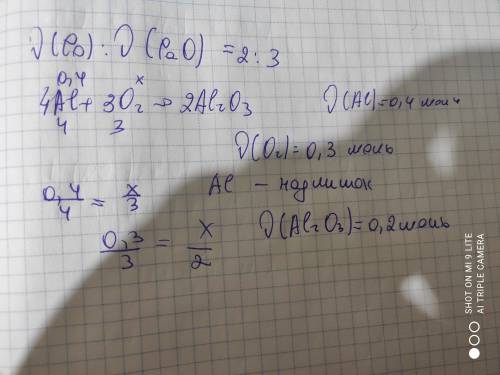 ν(Ba) : ν(BaO) = 2 : 3
0,4 x
4Al + 3O₂ → 2Al₂O₃ ν(Al) = 0,4 моль
4 3
ν(O₂) = 0,3 моль
0,4/4 = x/3 Al – надлишок
0,3/3 = x/2 ν(Al₂O₃) = 0,2 моль
SHOT ON MI 9 LITE
AI TRIPLE CAMERA